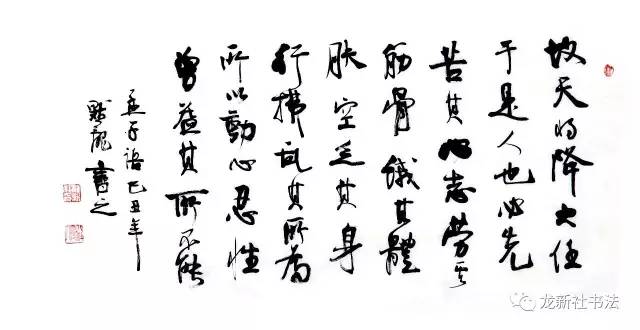 故天将降大任
于是人也必先
苦其心志劳其
筋骨餓其體
肤空乏其身
行拂乱其所為
所以動心忍性
曾益其所不能
孟子語己丑年
書之
龙新社书法